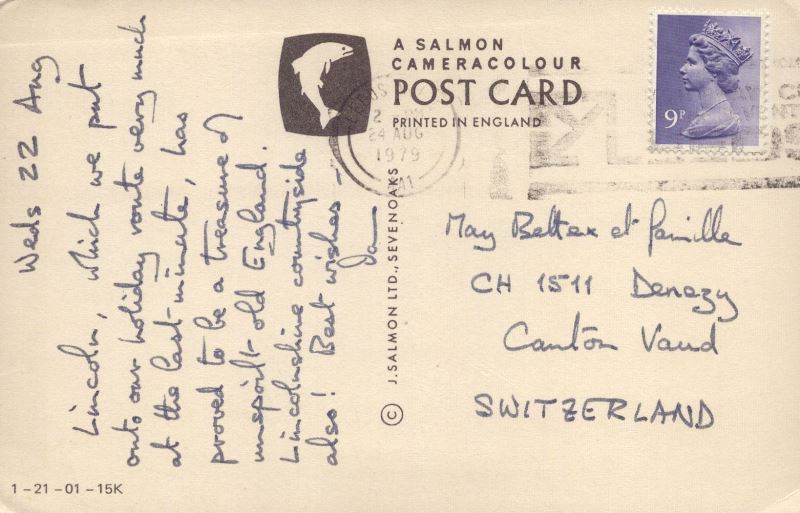 Weds 22 Aug
Lincoln, which we put
onto our holiday route very much
at the last minute, has
proved to be a treasure of
unspoilt old England.
Lincolnshire countryside
also! Best wishes –
A SALMON
CAMERACOLOUR
POST CARD
PRINTED IN ENGLAND
© J. SALMON LTD., SEVENOAKS
24 AUG
1979
9P
May Bettex et famille
CH 1511 Denezy
Canton Vaud
SWITZERLAND
1–21–01–15K